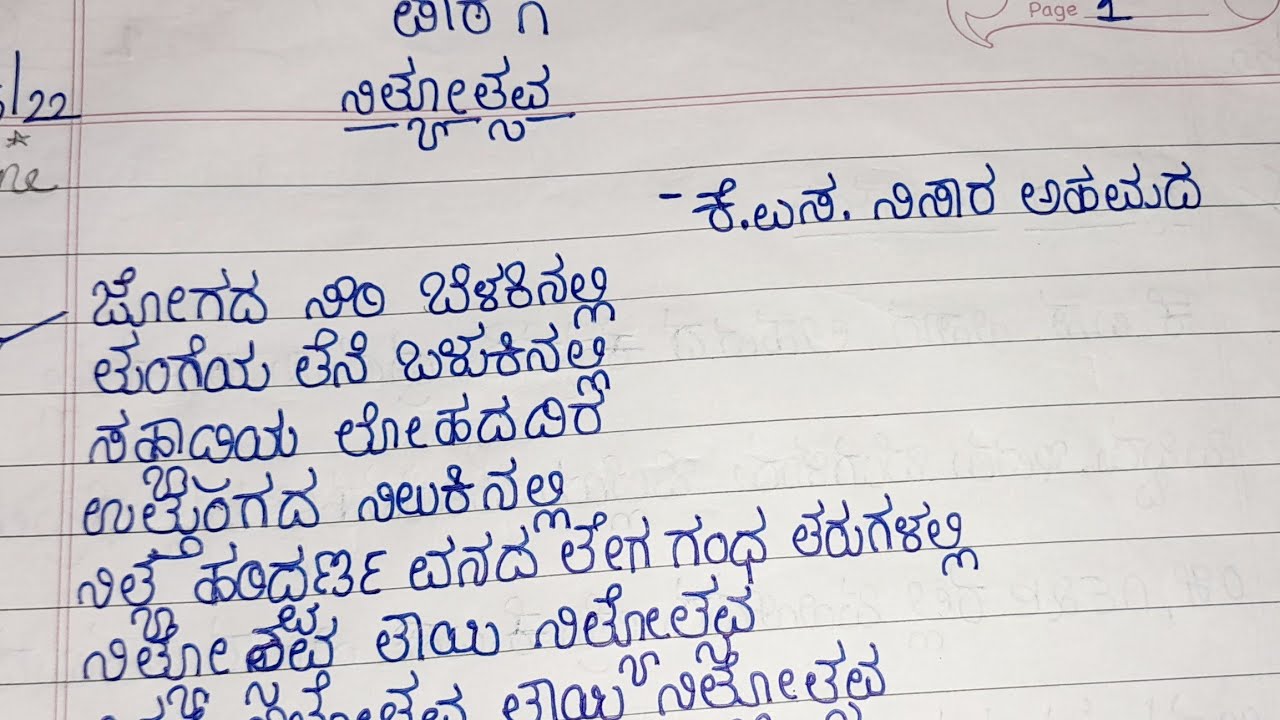 Page 1
ಪಾಠ ೧
/22
ನಿತ್ಯೋತ್ಸವ
- ಕೆ.ಎಸ. ನಿಸಾರ ಅಹಮದ
ಜೋಗದ ಸಿರಿ ಬೆಳಕಿನಲ್ಲಿ
ತುಂಗೆಯ ತೆನೆ ಬಳುಕಿನಲ್ಲಿ
ಸಹ್ಯಾದ್ರಿಯ ಲೋಹದದಿರ
ಉತ್ತುಂಗದ ನಿಲುಕಿನಲ್ಲಿ
ನಿತ್ಯ ಹರಿದ್ವರ್ಣ ವನದ ತೇಗ ಗಂಧ ತರುಗಳಲ್ಲಿ
ನಿತ್ಯೋತ್ಸವ ತಾಯಿ ನಿತ್ಯೋತ್ಸವ
ತಾಯಿ ನಿತ್ಯೋತ್ಸವ